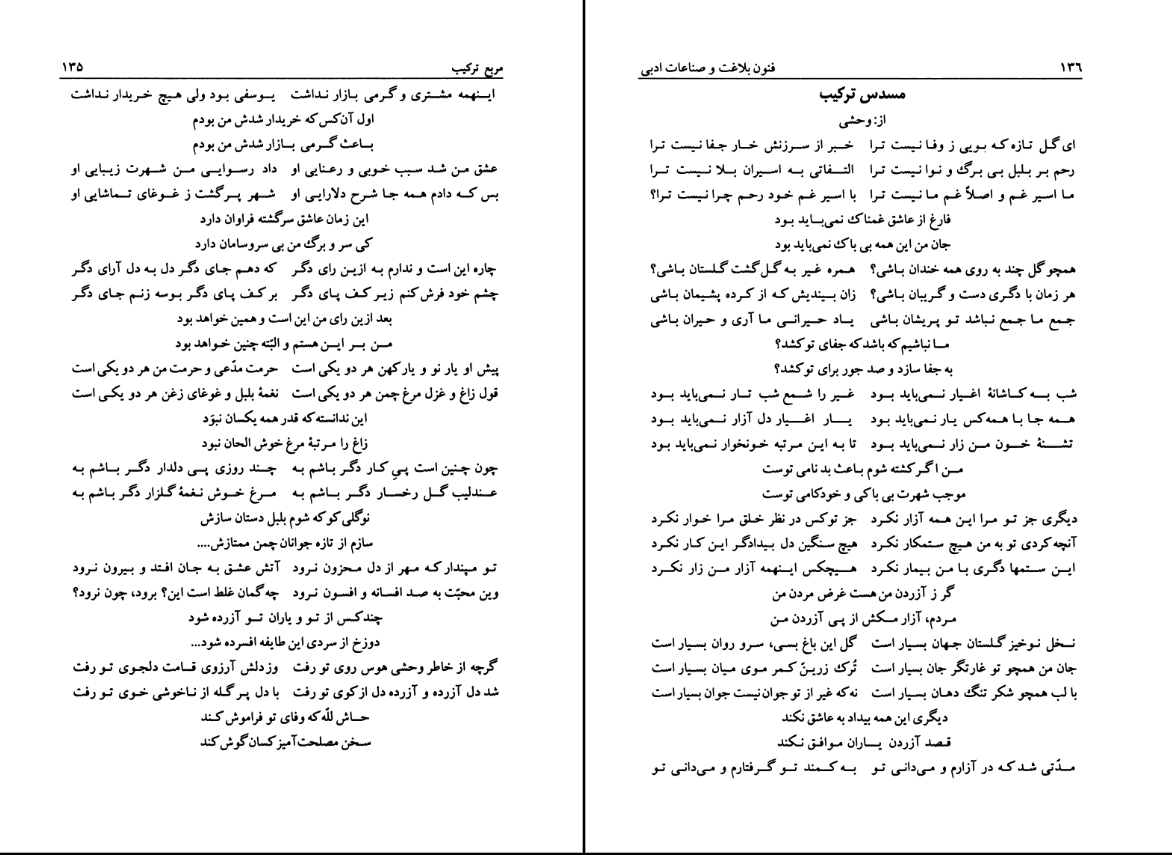 مربع ترکیب ۱۳۵
اینهمه مشتری و گرمی بازار نداشت یوسفی بود ولی هیچ خریدار نداشت
اول آن‌کس که خریدار شدش من بودم
باعث گرمی بازار شدش من بودم
عشق من شد سبب خوبی و رعنایی او داد رسوایی من شهرت زیبایی او
بس که دادم همه جا شرح دلارایی او شهر پرگشت ز غوغای تماشایی او
این زمان عاشق سرگشته فراوان دارد
کی سر و برگ من بی سروسامان دارد
چاره این است و ندارم به ازین رای دگر که دهم جای دگر دل به دل آرای دگر
چشم خود فرش کنم زیر کف پای دگر بر کف پای دگر بوسه زنم جای دگر
بعد ازین رای من این است و همین خواهد بود
من بر این هستم و البّته چنین خواهد بود
پیش او یار نو و یار کهن هر دو یکی است حرمت مدّعی و حرمت من هر دو یکی است
قول زاغ و غزل مرغ چمن هر دو یکی است نغمهٔ بلبل و غوغای زغن هر دو یکی است
این ندانسته که قدر همه یکسان نبوَد
زاغ را مرتبهٔ مرغ خوش الحان نبود
چون چنین است پیِ کار دگر باشم به چند روزی پی دلدار دگر باشم به
عندلیب گل رخسار دگر باشم به مرغ خوش نغمهٔ گلزار دگر باشم به
نوگلی کو که شوم بلبل دستان سازش
سازم از تازه جوانان چمن ممتازش....
تو مپندار که مهر از دل محزون نرود آتش عشق به جان افتد و بیرون نرود
وین محبّت به صد افسانه و افسون نرود چه گمان غلط است این؟ برود، چون نرود؟
چند کس از تو و یاران تو آزرده شود
دوزخ از سردی این طایفه افسرده شود...
گرچه از خاطر وحشی هوس روی تو رفت وز دلش آرزوی قامت دلجوی تو رفت
شد دل آزرده و آزرده دل از کوی تو رفت با دل پرگله از ناخوشی خوی تو رفت
حاش للّه که وفای تو فراموش کند
سخن مصلحت‌آمیز کسان گوش کند
۱۳۶ فنون بلاغت و صناعات ادبی
مسدس ترکیب
از: وحشی
ای گل تازه که بویی ز وفا نیست ترا خبر از سرزنش خار جفا نیست ترا
رحم بر بلبل بی برگ و نوا نیست ترا التفاتی به اسیران بلا نیست ترا
ما اسیر غم و اصلاً غم ما نیست ترا با اسیر غم خود رحم چرا نیست ترا؟
فارغ از عاشق غمناک نمی‌باید بود
جان من این همه بی باک نمی‌باید بود
همچو گل چند به روی همه خندان باشی؟ همره غیر به گل گشت گلستان باشی؟
هر زمان با دگری دست و گریبان باشی؟ زان بیندیش که از کرده پشیمان باشی
جمع ما جمع نباشد تو پریشان باشی یاد حیرانی ما آری و حیران باشی
ما نباشیم که باشد که جفای تو کشد؟
به جفا سازد و صد جور برای تو کشد؟
شب به کاشانهٔ اغیار نمی‌باید بود غیر را شمع شب تار نمی‌باید بود
همه جا با همه‌کس یار نمی‌باید بود یار اغیار دل آزار نمی‌باید بود
تشنهٔ خون من زار نمی‌باید بود تا به این مرتبه خونخوار نمی‌باید بود
من اگر کشته شوم باعث بدنامی توست
موجب شهرت بی باکی و خودکامی توست
دیگری جز تو مرا این همه آزار نکرد جز تو کس در نظر خلق مرا خوار نکرد
آنچه کردی تو به من هیچ ستمکار نکرد هیچ سنگین دل بیدادگر این کار نکرد
این ستمها دگری با من بیمار نکرد هیچکس اینهمه آزار من زار نکرد
گر ز آزردن من هست غرض مردن من
مردم، آزار مکش از پی آزردن من
نخل نوخیز گلستان جهان بسیار است گل این باغ بسی، سرو روان بسیار است
جان من همچو تو غارتگر جان بسیار است تُرک زرینْ کمر موی میان بسیار است
با لب همچو شکر تنگ دهان بسیار است نه که غیر از تو جوان نیست جوان بسیار است
دیگری این همه بیداد به عاشق نکند
قصد آزردن یاران موافق نکند
مدّتی شد که در آزارم و می‌دانی تو به کمند تو گرفتارم و می‌دانی تو